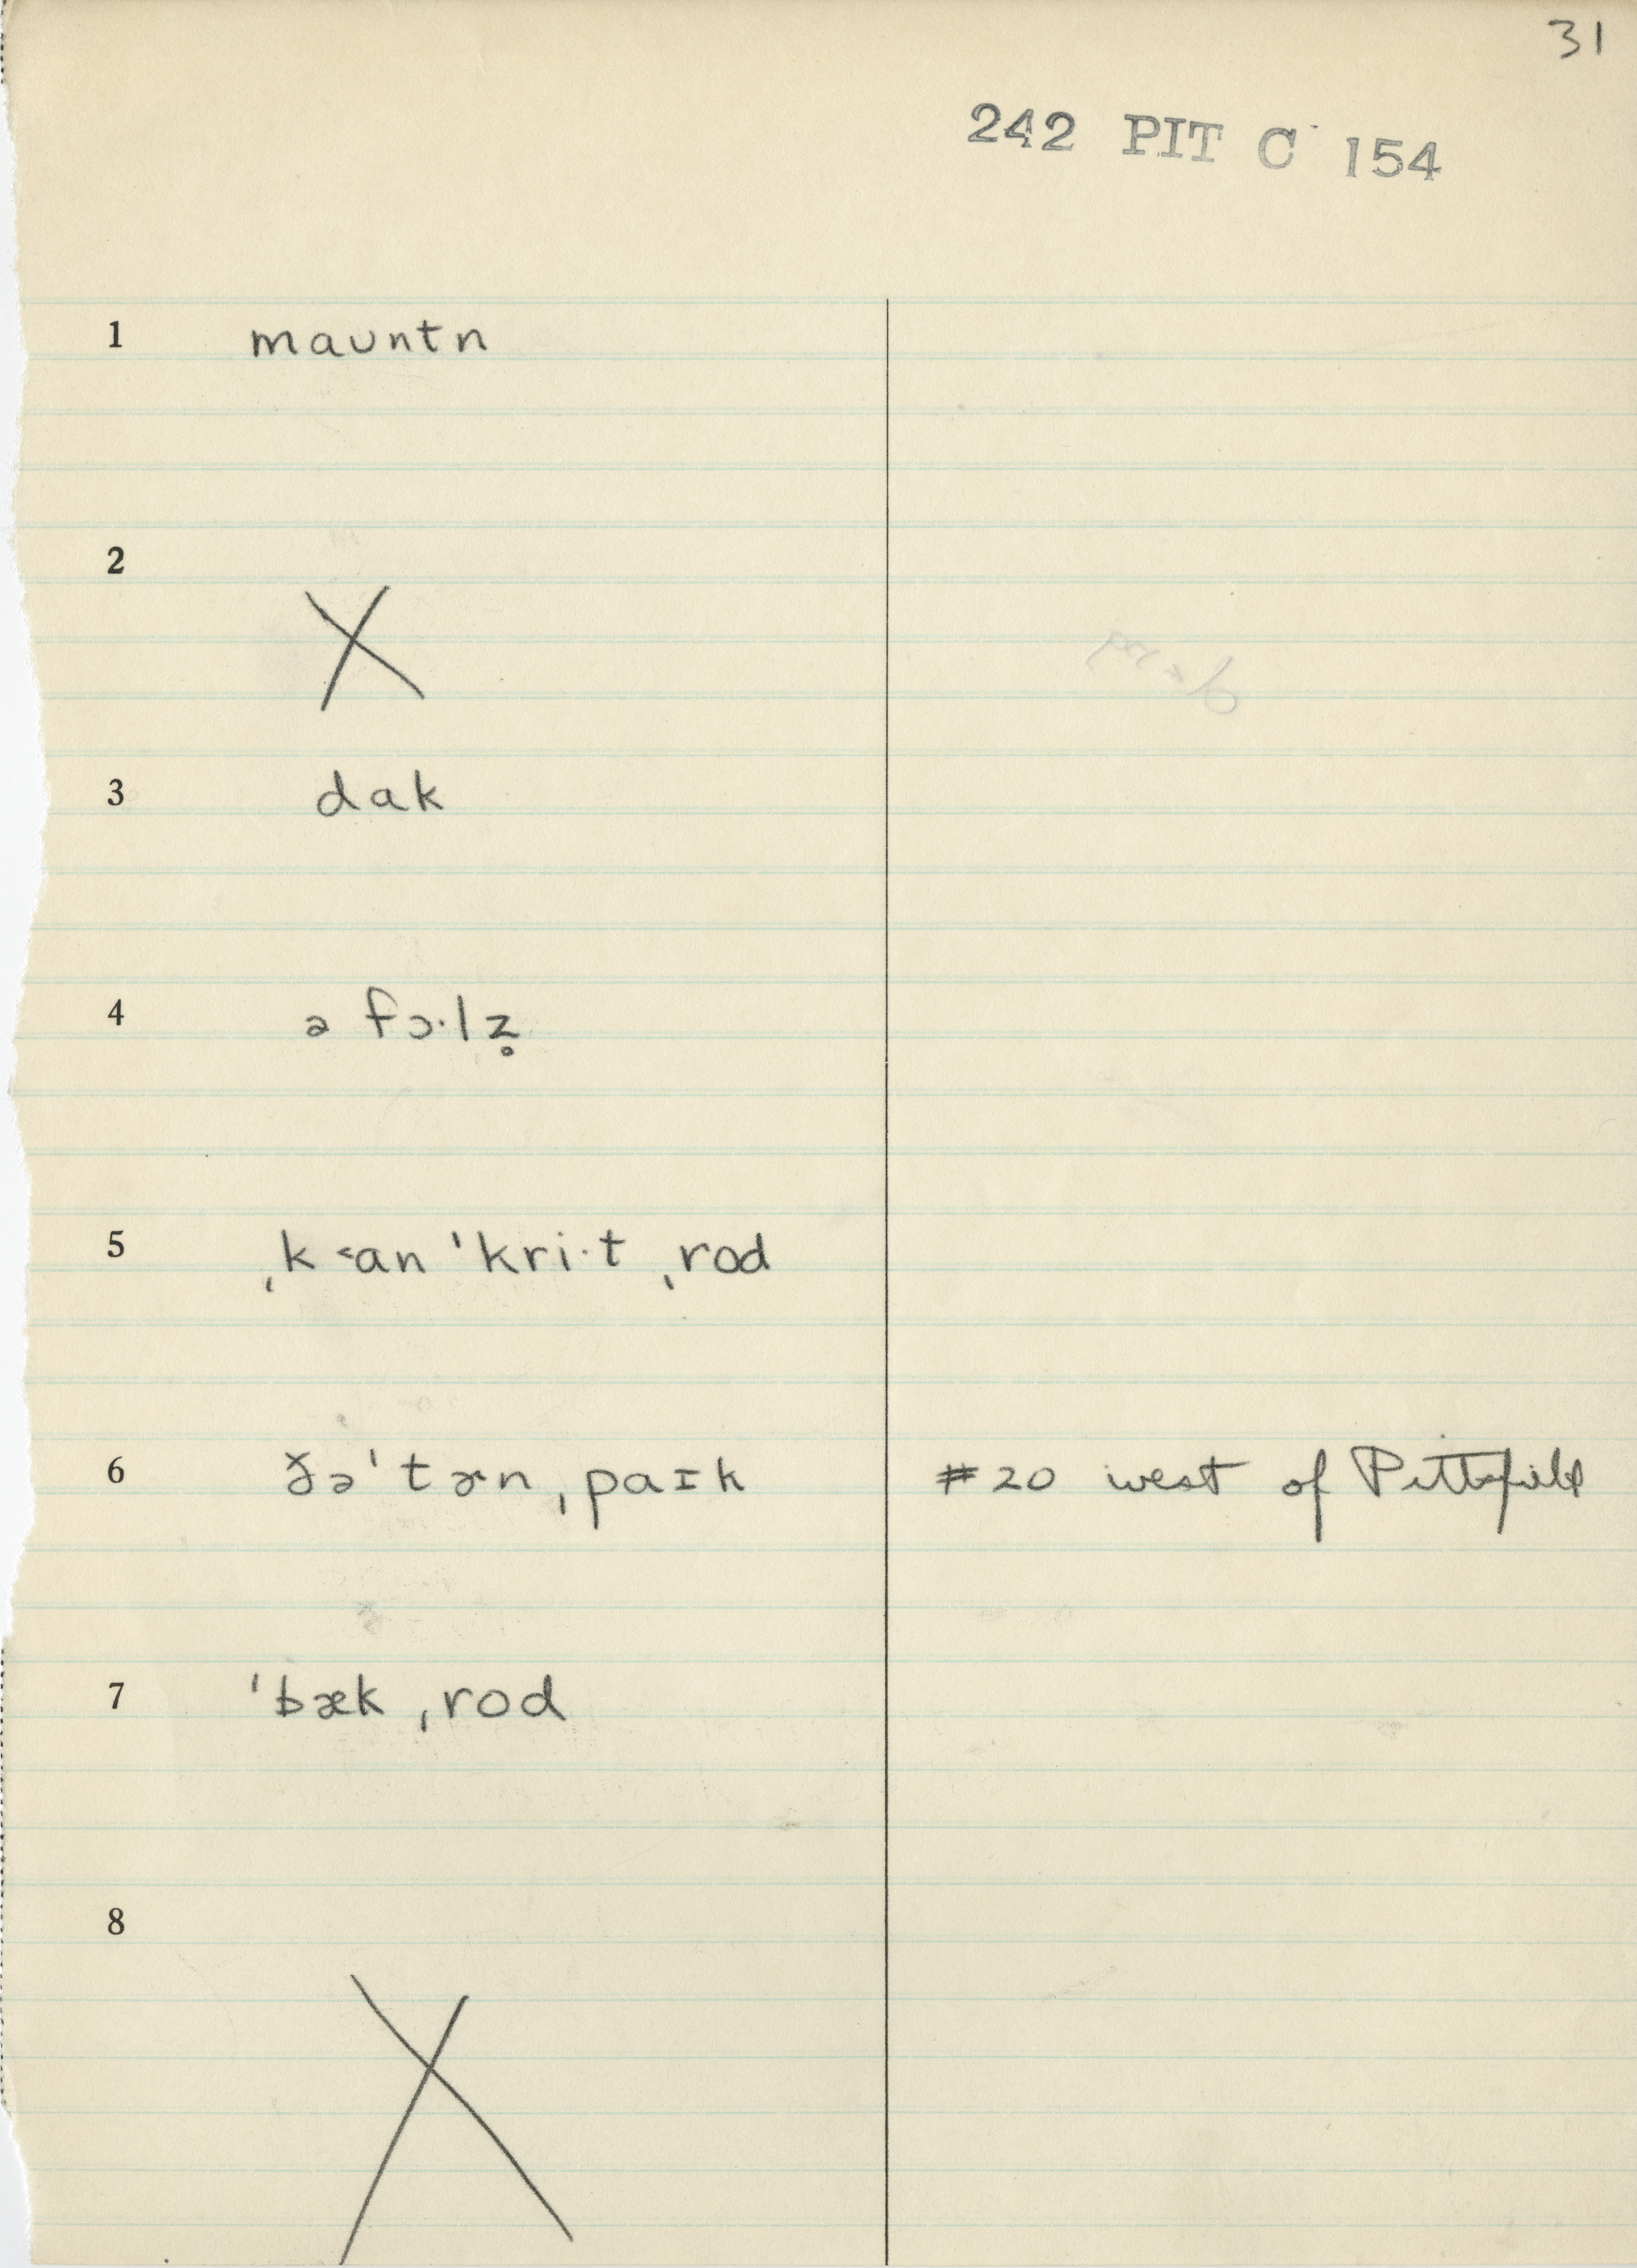 31
242 PIT C 154
1 maʊntn
2 X
3 dak
4 ə fɔ·lz̥
5 ˌk˂an ˈkri·t ˌrod
6 ðəˈtɚn ˌpaɪk #20 west of Pittsfield
7 ˈbæk ˌrod
8 X